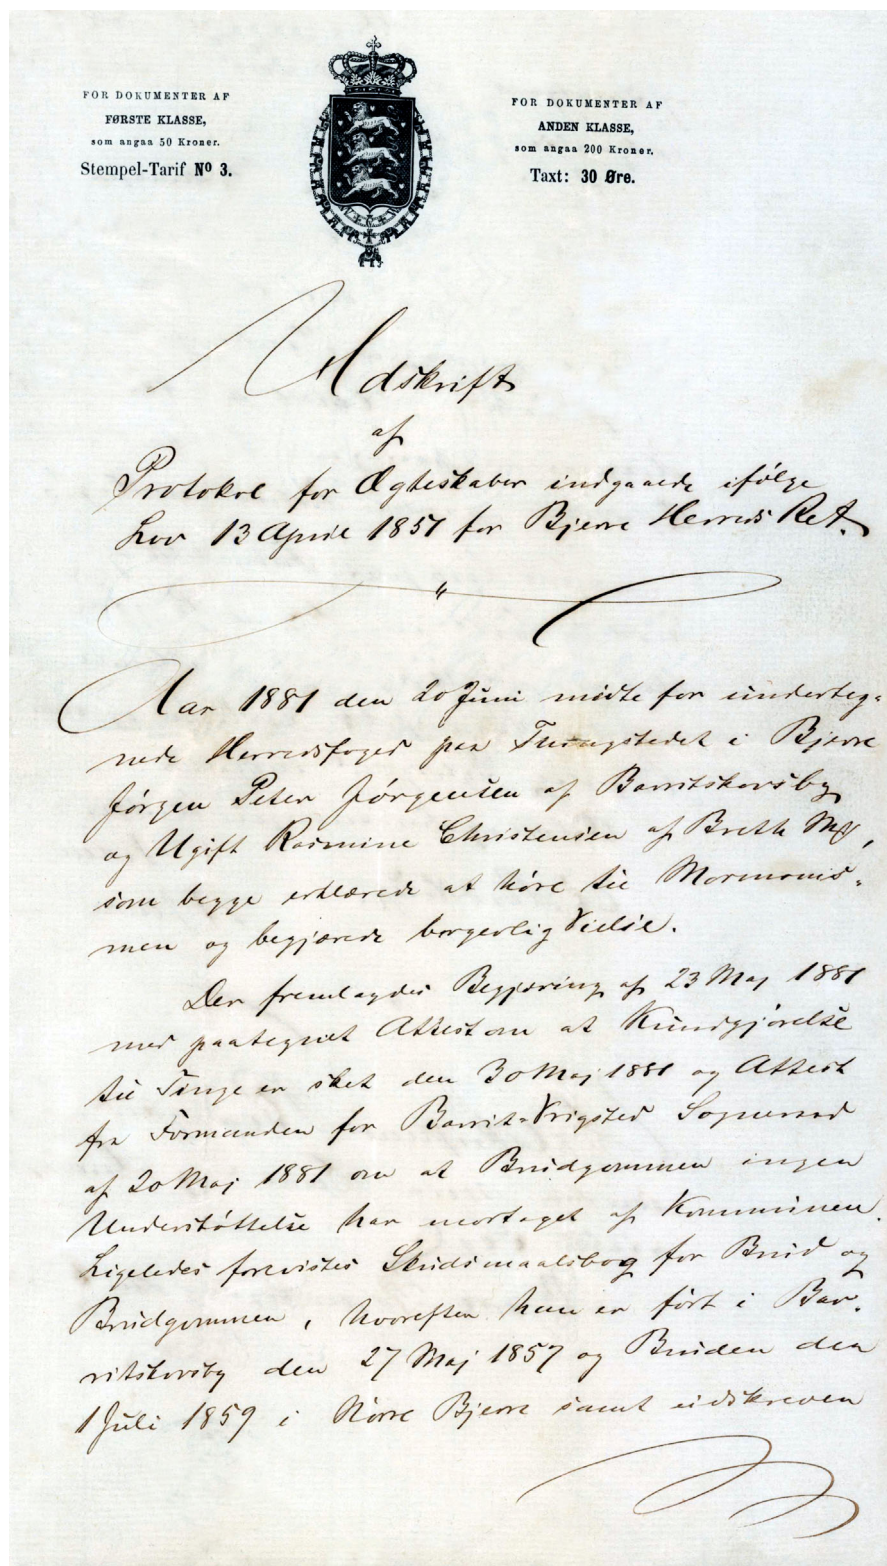 FOR DOKUMENTER AF
FØRSTE KLASSE,
som angaa 50 Kroner.
Stempel-Tarif Nº 3.
FOR DOKUMENTER AF
ANDEN KLASSE,
som angaa 200 Kroner.
Taxt: 30 Øre.
Udskrift
af
Protokol for Ægteskaber indgaaede ifølge
Lov 13 April 1851 for Bjerre Herreds Ret.
Aar 1881 den 20 Juni mødte for underteg-
nede Herredsfoged paa Thingstedet i Bjerre
Jörgen Peter Jörgensen af Barritskovsby
og Ugift Rasmine Christensen af Breth
som begge erklærede at höre til Mormonis-
men og begjærede borgerlig Vielse.
Der fremlagdes Begjæring af 23 Maj 1881
med paategnet Attest om at Kundgjörelse
til Tinge er sket den 30 Maj 1881 og Attest
fra Formanden for Barrit-Vrigsted Sogneraad
af 20 Maj 1881 om at Brudgommen ingen
Understöttelse har modtaget af Kommunen.
Ligeledes forevistes Skudsmaalsbog for Brud og
Brudgommen, hvorefter han er födt i Bar-
ritskovsby den 27 Maj 1857 og Bruden den
1 Juli 1859 i Nörre Bjerre samt udskreven